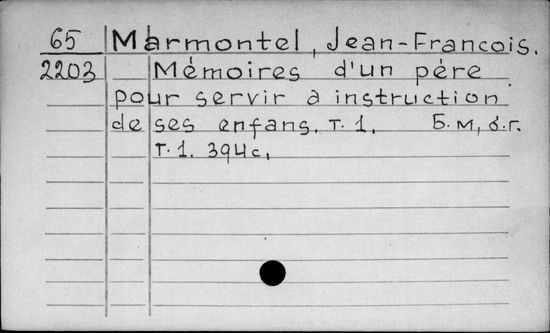 65 Marmontel, Jean-Francois.
2203 Mémoires d'un père
pour servir a instruction
de ses enfans. т. 1. Б. м, б. г.
т. 1. 394с,